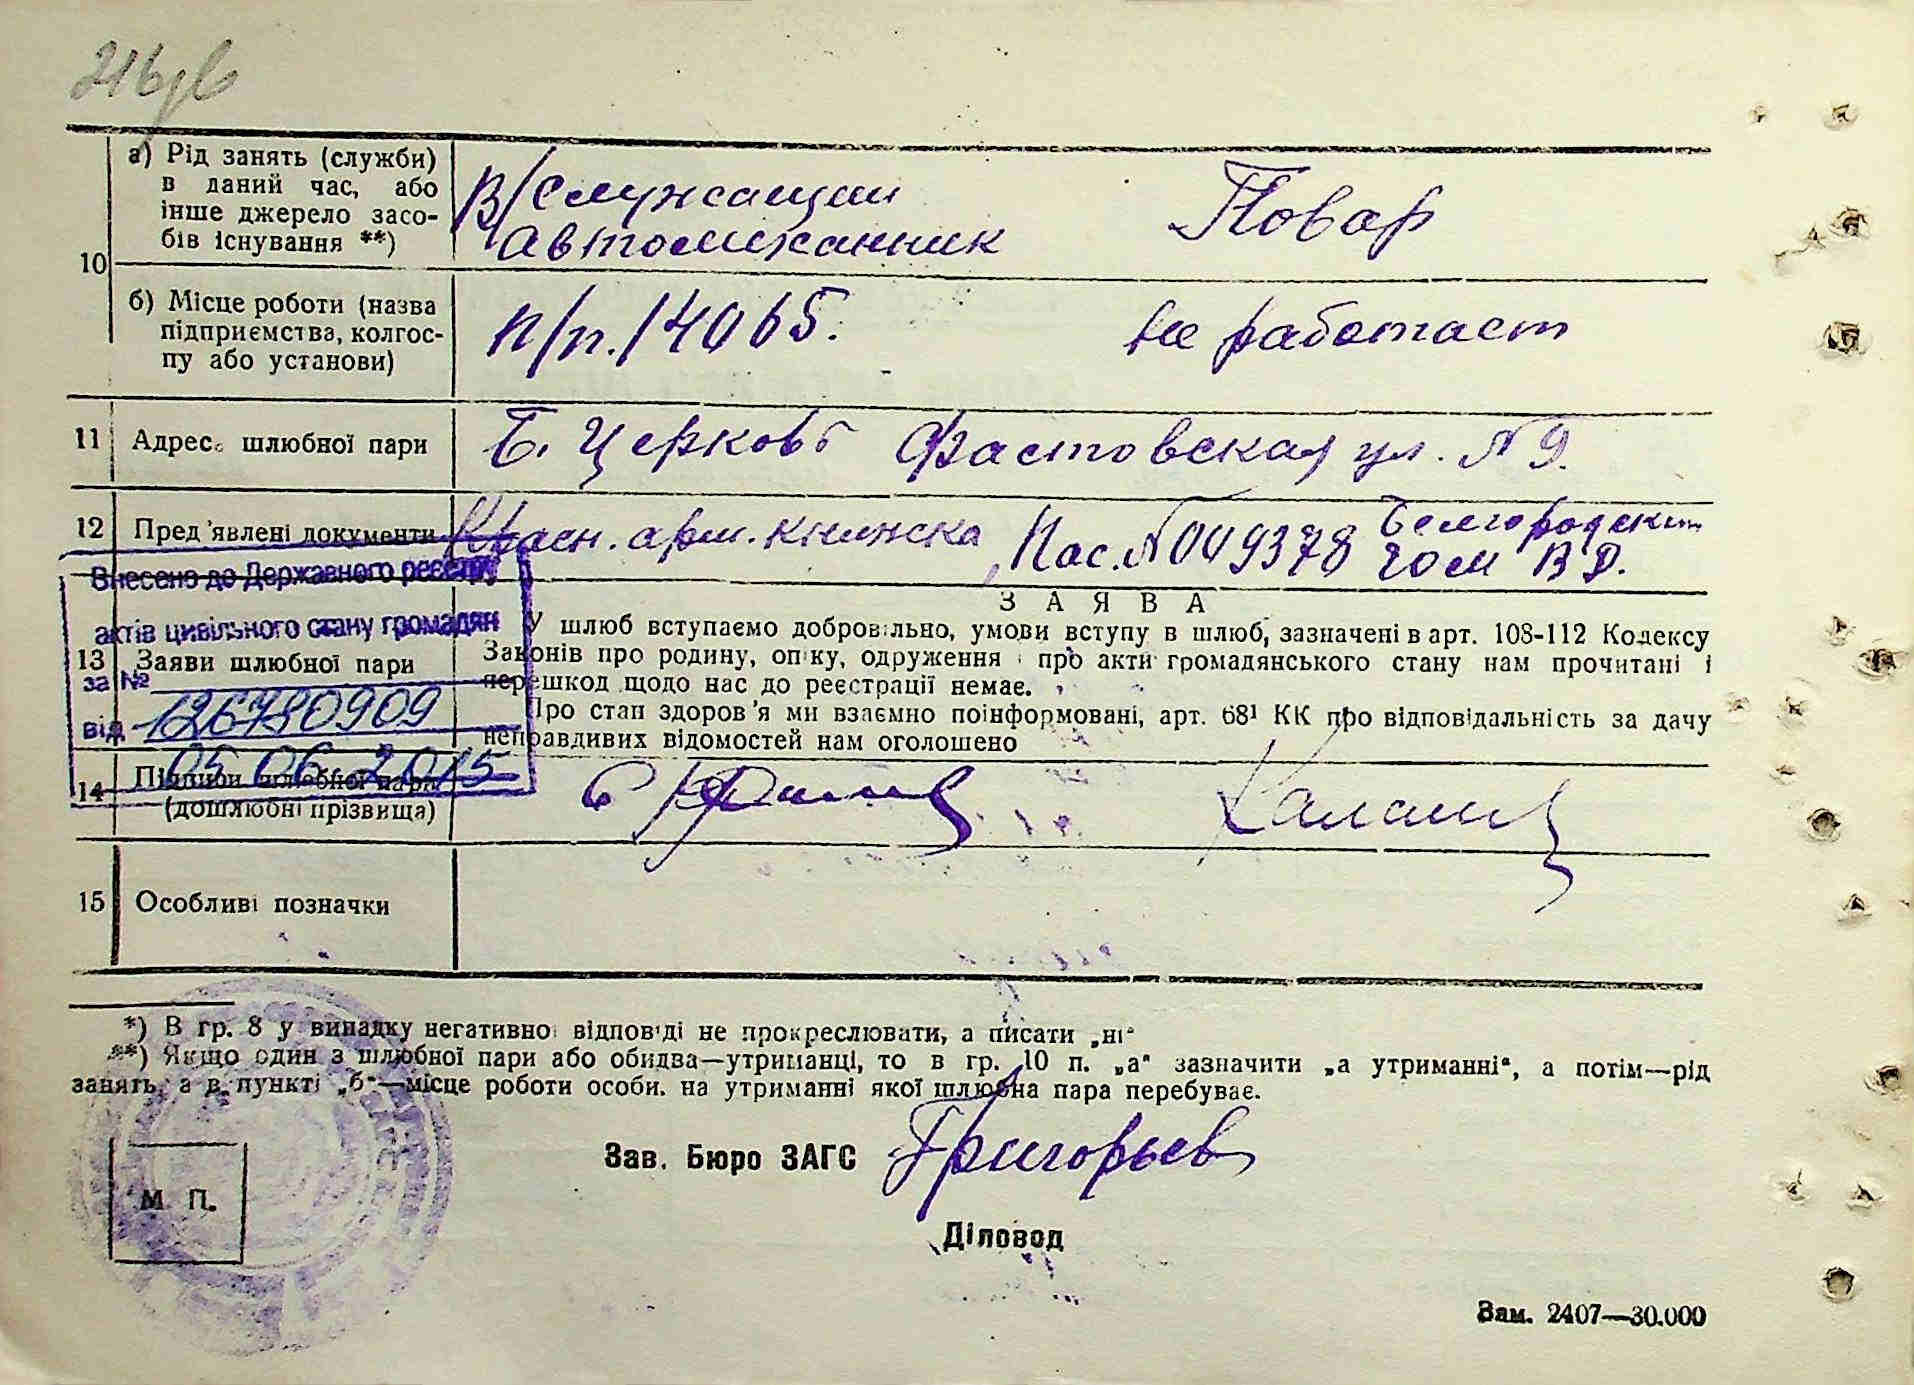 10
а) Рід занять (служби)
в даний час, або
інше джерело засо-
бів існування **)
В/служащий
автомеханник
Повар
б) Місце роботи (назва
підприємства, колгос-
пу або установи)
п/п. 14065.
не работает
11 Адрес шлюбної пари
Б. Церковь Фастовская ул. № 9.
12 Пред'явлені документи
Красн. арм. книжка
Пас. № 049378 Белгородским
гом В Д.
Внесено до Державного реєстру
актів цивільного стану громадян
за №
126780909
від
05 06 2015
13 Заяви шлюбної пари
ЗАЯВА
У шлюб вступаємо добровільно, умови вступу в шлюб, зазначені в арт. 108-112 Кодексу
Законів про родину, опіку, одруження і про акти громадянського стану нам прочитані і
перешкод щодо нас до реєстрації немає.
Про стан здоров'я ми взаємно поінформовані, арт. 68¹ КК про відповідальність за дачу
неправдивих відомостей нам оголошено
14 Підписи шлюбної пари
(дошлюбні прізвища)
15 Особливі позначки
*) В гр. 8 у випадку негативної відповіді не прокреслювати, а писати „ні“
**) Якщо один з шлюбної пари або обидва—утриманці, то в гр. 10 п. „а“ зазначити „а утриманні“, а потім—рід
занять, а в пункті „б“—місце роботи особи, на утриманні якої шлюбна пара перебуває.
Зав. Бюро ЗАГС Григорьев
М. П.
Діловод
Зам. 2407—30.000